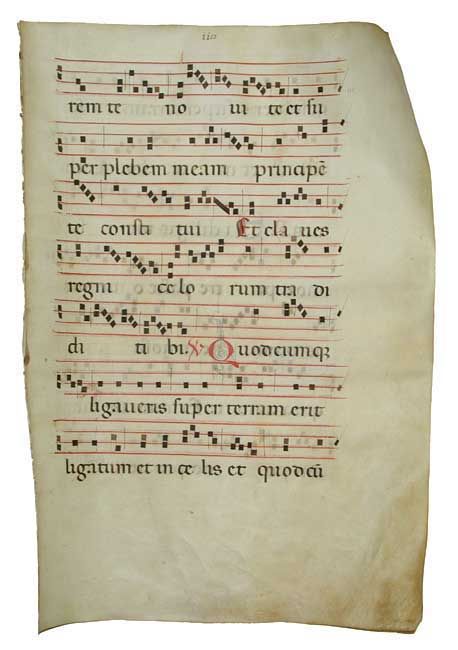 rem te no ui te et su
per plebem meam principē
te consti tui Et claues
regni ce lo rum tra di
di ti bi. V Quodcumqꝫ
ligaueris super terram erit
ligatum et in ce lis et quodcū